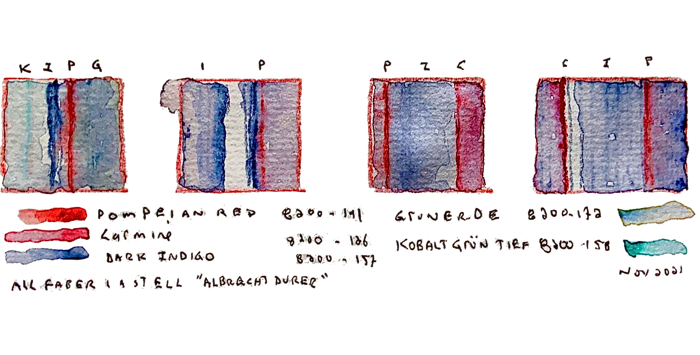 K I P G
I P
P I C
C I P
POMPEIAN RED 8200-191
CARMINE 8200-126
DARK INDIGO 8200-157
GRUNERDE 8200-172
KOBALTGRÜN TIEF 8200-158
ALL FABER CASTELL "ALBRECHT DURER"
NOV 2021